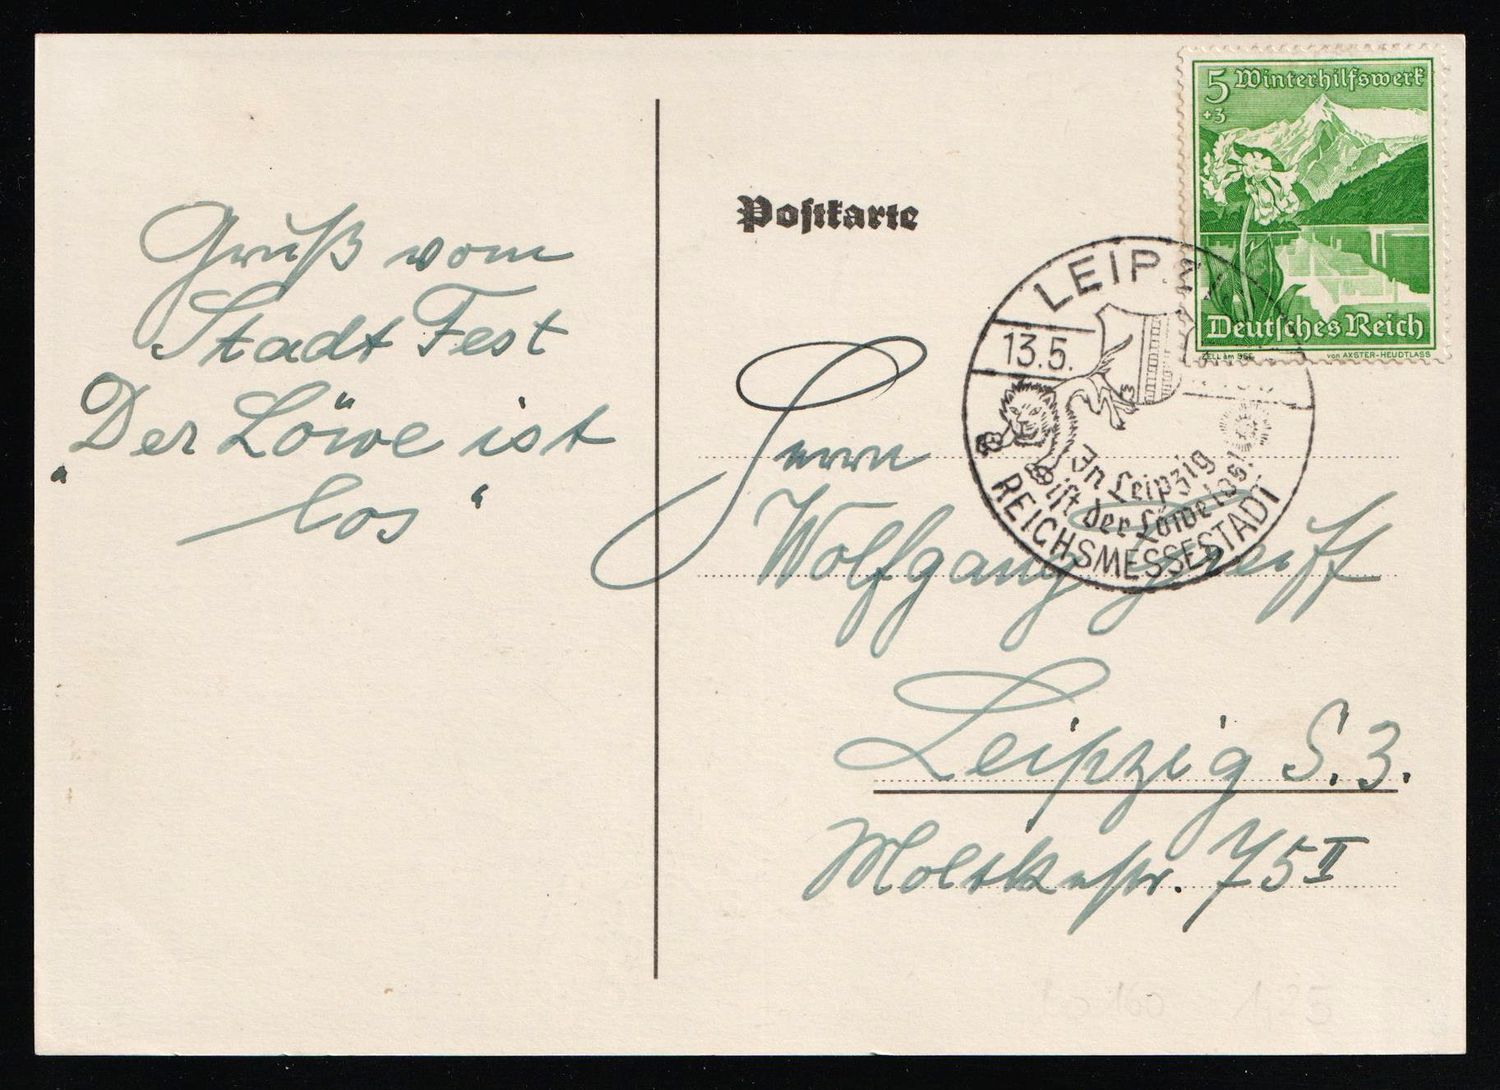 Gruß vom
Stadt Fest
Der Löwe ist
"los"
Postkarte
5 Winterhilfswerk
+3
Deutsches Reich
ZELL am SEE von AXSTER-HEUDTLASS
LEIPZI
13.5.
In Leipzig
ist der Löwe los!
REICHSMESSESTADT
Herrn
Wolfgang Greiff
Leipzig S. 3.
Moltkestr. 75 II
1,25